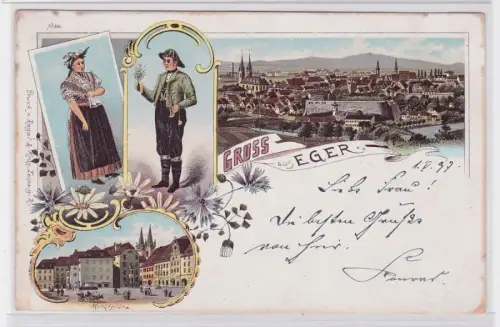 GRUSS
aus
EGER.
1.V.97
Liebe Frau!
Die besten Grüße
von hier.
Konrad.